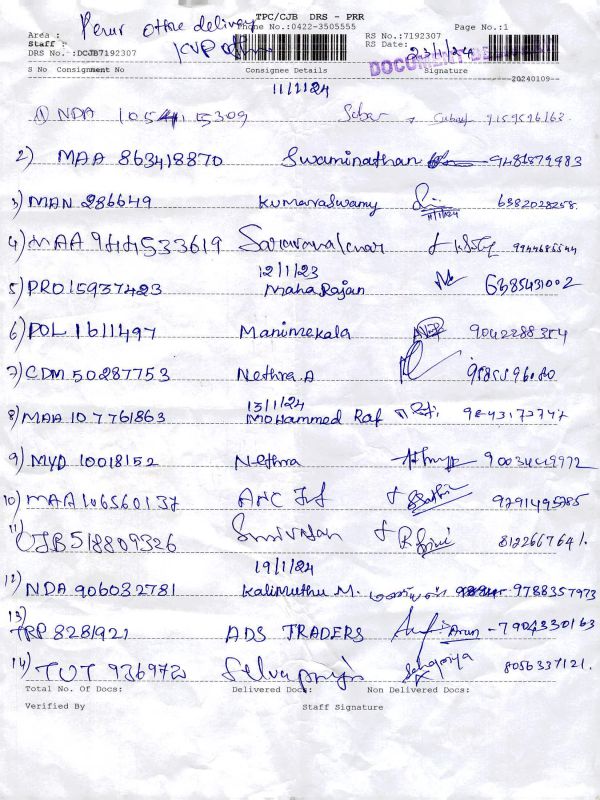 Perur office delivery
TPC/CJB DRS - PRR
Area :
Phone No.:0422-3505555
Page No.:1
Staff :
KVP
RS No.:7192307
DRS No.:DCJB7192307
RS Date:
23/1/24
S No Consignment No Consignee Details Signature
20240109
11/1/24
1) NDA 9159596168
2) MAA 863418870 Swaminathan 9481879983
3) MAN 286649 Kumaraswamy 11/1/24 6382028258
4) MAA 944533619 Saravanakumar 9944685544
12/1/23
5) PRO 15937423 Maha Rajan 6385431002
6) POL 1611497 Manimekala 9042288354
7) CDM 50287753 Nethra.A 9585596080
13/1/24
8) MAA 107761863 Mohammed Raf
9) MYD 10018152 Nethra 9003449972
10) MAA 106560137 9791495785
11) CJB 518809326 Srinivasan 8122667641.
19/1/24
12) NDA 906032781 Kalimuthu M. 9788357973
13) TRP 8281921 ADS TRADERS Arun - 7904330163
14) TUT 936972 Selvapriya 8056337121.
Total No. Of Docs: Delivered Docs: Non Delivered Docs:
Verified By Staff Signature